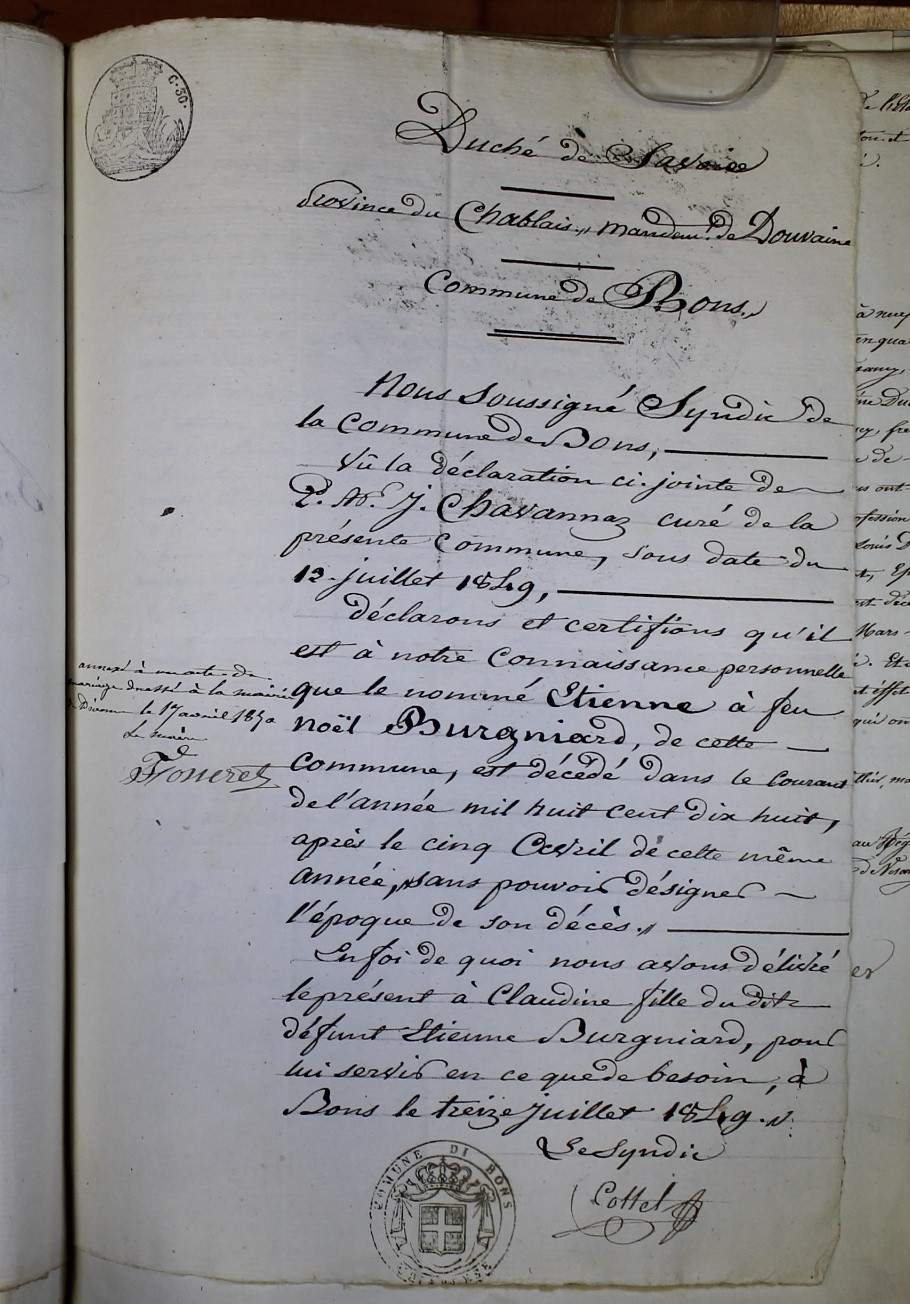 C. 50.
Duché de Savoie
Province du Chablais, mandemt. de Douvaine
Commune de Bons
Nous Soussigné Syndic de
la Commune de Bons,
Vû la déclaration ci-jointe de
J. Chavannaz curé de la
présente Commune, sous date du
juillet 1849,
déclarons et certifions qu'il
est à notre Connaissance personnelle
que le nommé Etienne à feu
noël Burgniard, de cette
Commune, est décédé dans le Courant
de l'année mil huit cent dix huit,
après le cinq Avril de cette même
année, sans pouvoir désigner
l'époque de son décès.
En foi de quoi nous avons délivré
le présent à Claudine fille du dit
défunt Etienne Burgniard, pour
lui servir en ce que de besoin, à
Bons le treize juillet 1849.
Le Syndic
annexé à un acte de
mariage dressé à la mairie
Divonne le 17 avril 1850
Le maire
COMUNE DI BONS